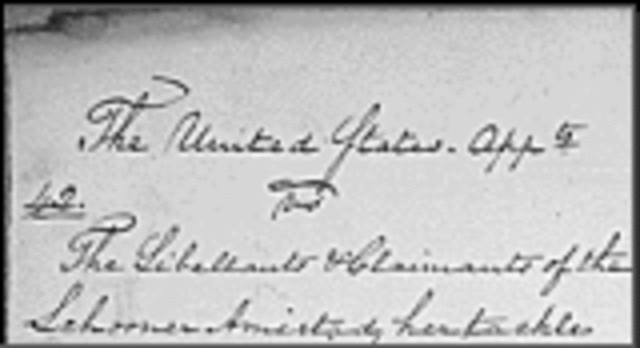 The United States. Appts
vs
42.
The Libellants & Claimants of the
Schooner Amistad, her tackles